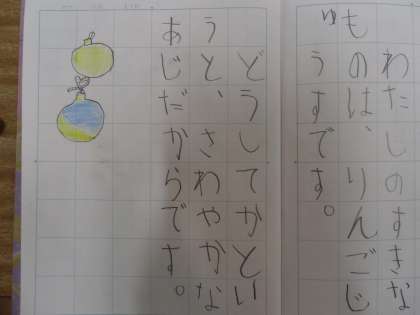 わたしのすきな
ものは、りんごじ
ゅうすです。
どうしてかとい
うと、さわやかな
あじだからです。